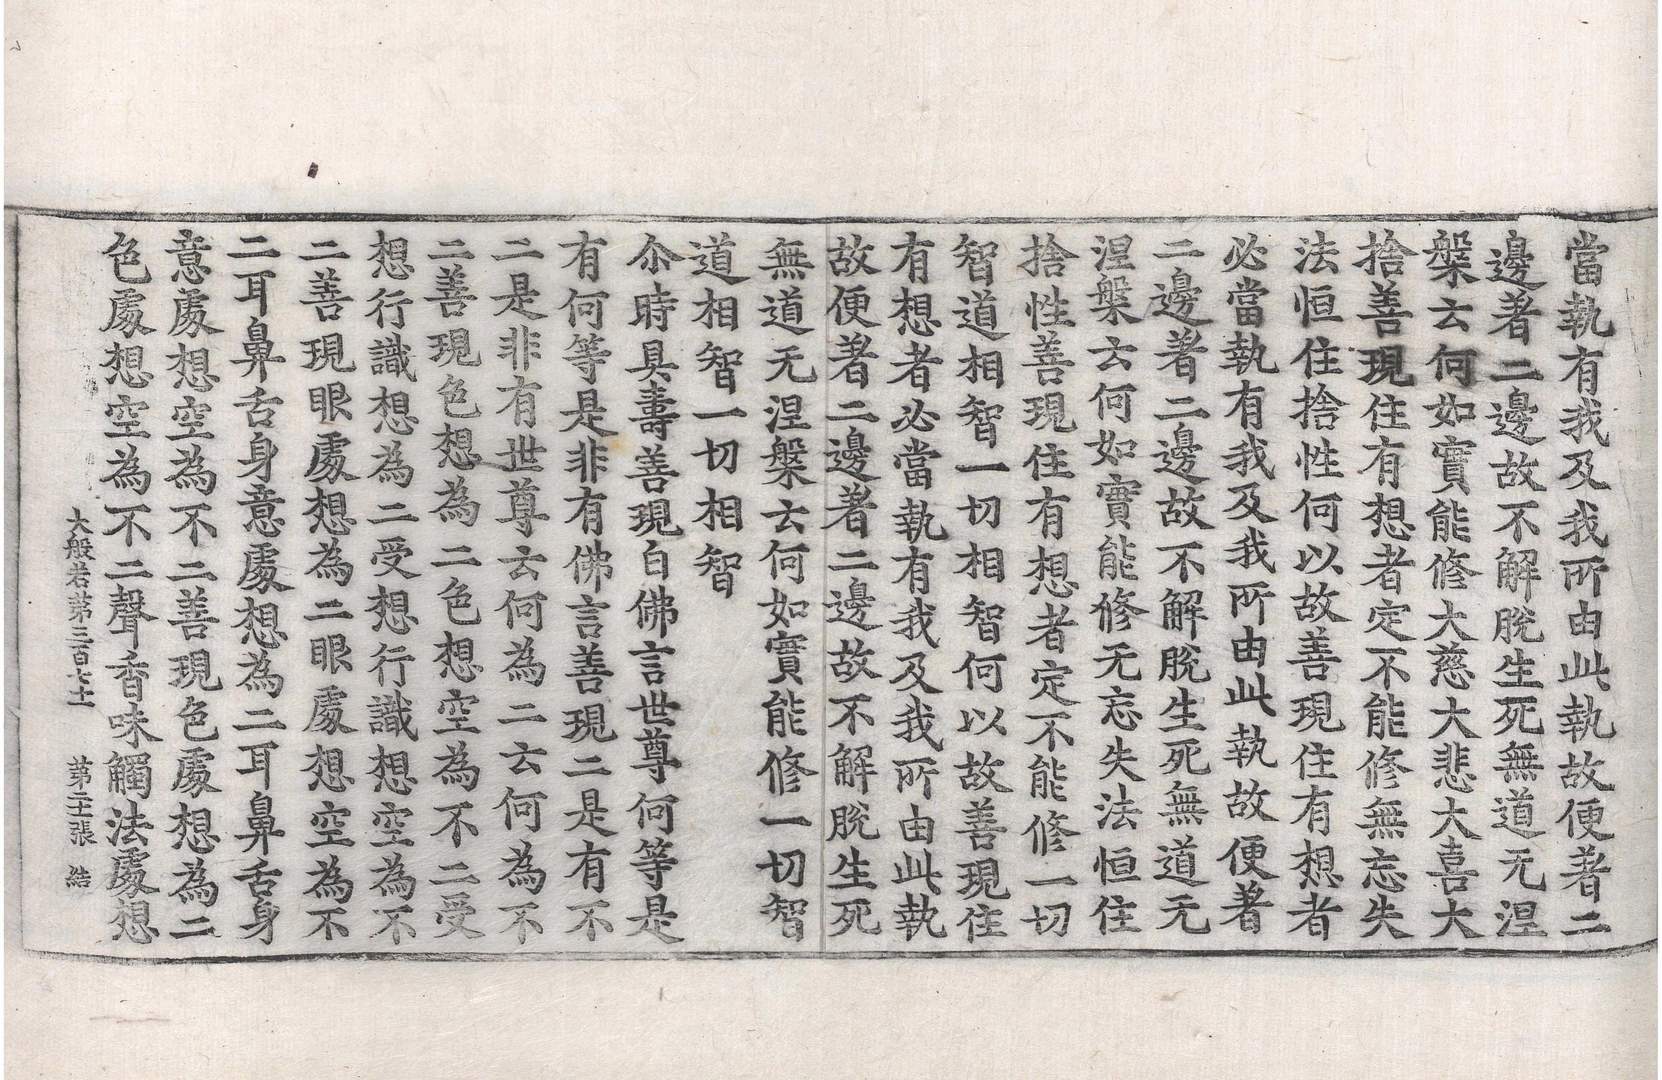 當執有我及我所由此執故便著二
邊著二邊故不解脫生死無道无涅
槃云何如實能修大慈大悲大喜大
捨善現住有想者定不能修無忘失
法恒住捨性何以故善現住有想者
必當執有我及我所由此執故便著
二邊著二邊故不解脫生死無道无
涅槃云何如實能修无忘失法恒住
捨性善現住有想者定不能修一切
智道相智一切相智何以故善現住
有想者必當執有我及我所由此執
故便著二邊著二邊故不解脫生死
無道无涅槃云何如實能修一切智
道相智一切相智
尒時具壽善現白佛言世尊何等是
有何等是非有佛言善現二是有不
二是非有世尊云何為二云何為不
二善現色想為二色想空為不二受
想行識想為二受想行識想空為不
二善現眼處想為二眼處想空為不
二耳鼻舌身意處想為二耳鼻舌身
意處想空為不二善現色處想為二
色處想空為不二聲香味觸法處想
大般若第三百七十 第二十張 結